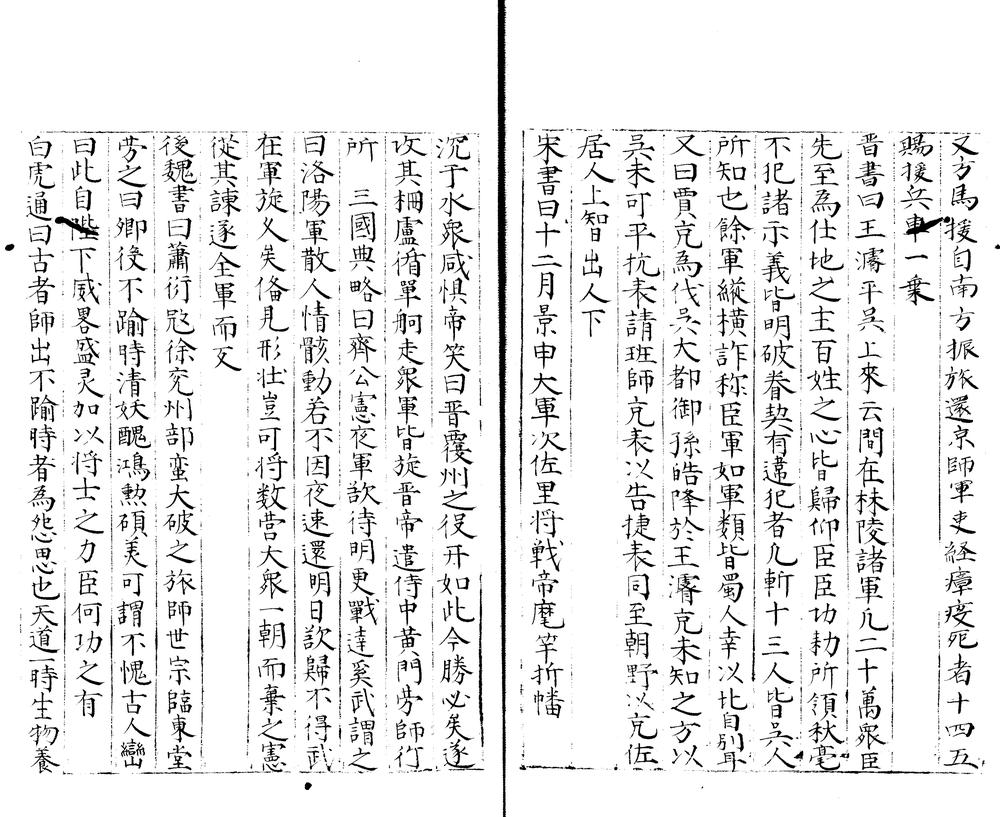 又方馬援自南方振旅還京師軍吏経瘴疫死者十四五
賜援兵車一乗
晋書曰王濬平吳上来云間在秣陵諸軍凢二十萬衆臣
先至為仕地之主百姓之心皆歸仰臣臣功勑所領秋毫
不犯諸示義皆明破眷契有違犯者凢斬十三人皆吳人
所知也餘軍縱横詐称臣軍如軍類皆蜀人幸以比自別耳
又曰賈充為伐吳大都御孫皓降於王濬充未知之方以
吳未可平抗表請班師充表以告捷表同至朝野以充佐
居人上智出人下
宋書曰十二月景申大軍次佐里将戦帝麾竿折幡
沉于水衆咸惧帝笑曰晋覆州之役幵如此今勝必矣遂
攻其柵盧循單舸走衆軍皆旋晋帝遣侍中黄門劳師行
所　三國典略曰齊公憲夜軍欲待明更戰達奚武謂之
曰洛陽軍散人情骸動若不因夜速還明日欲歸不得武
在軍旋久矣俻見形壮豈可将数营大衆一朝而棄之憲
從其諫遂全軍而叐
後魏書曰蕭衍冦徐兖州部蛮大破之旅師世宗臨東堂
劳之曰卿後不踰時清妖醜鴻勲碩美可謂不愧古人巒
曰此自陛下威畧盛灵加以将士之力臣何功之有
白虎通曰古者師出不踰時者為怨思也天道一時生物養